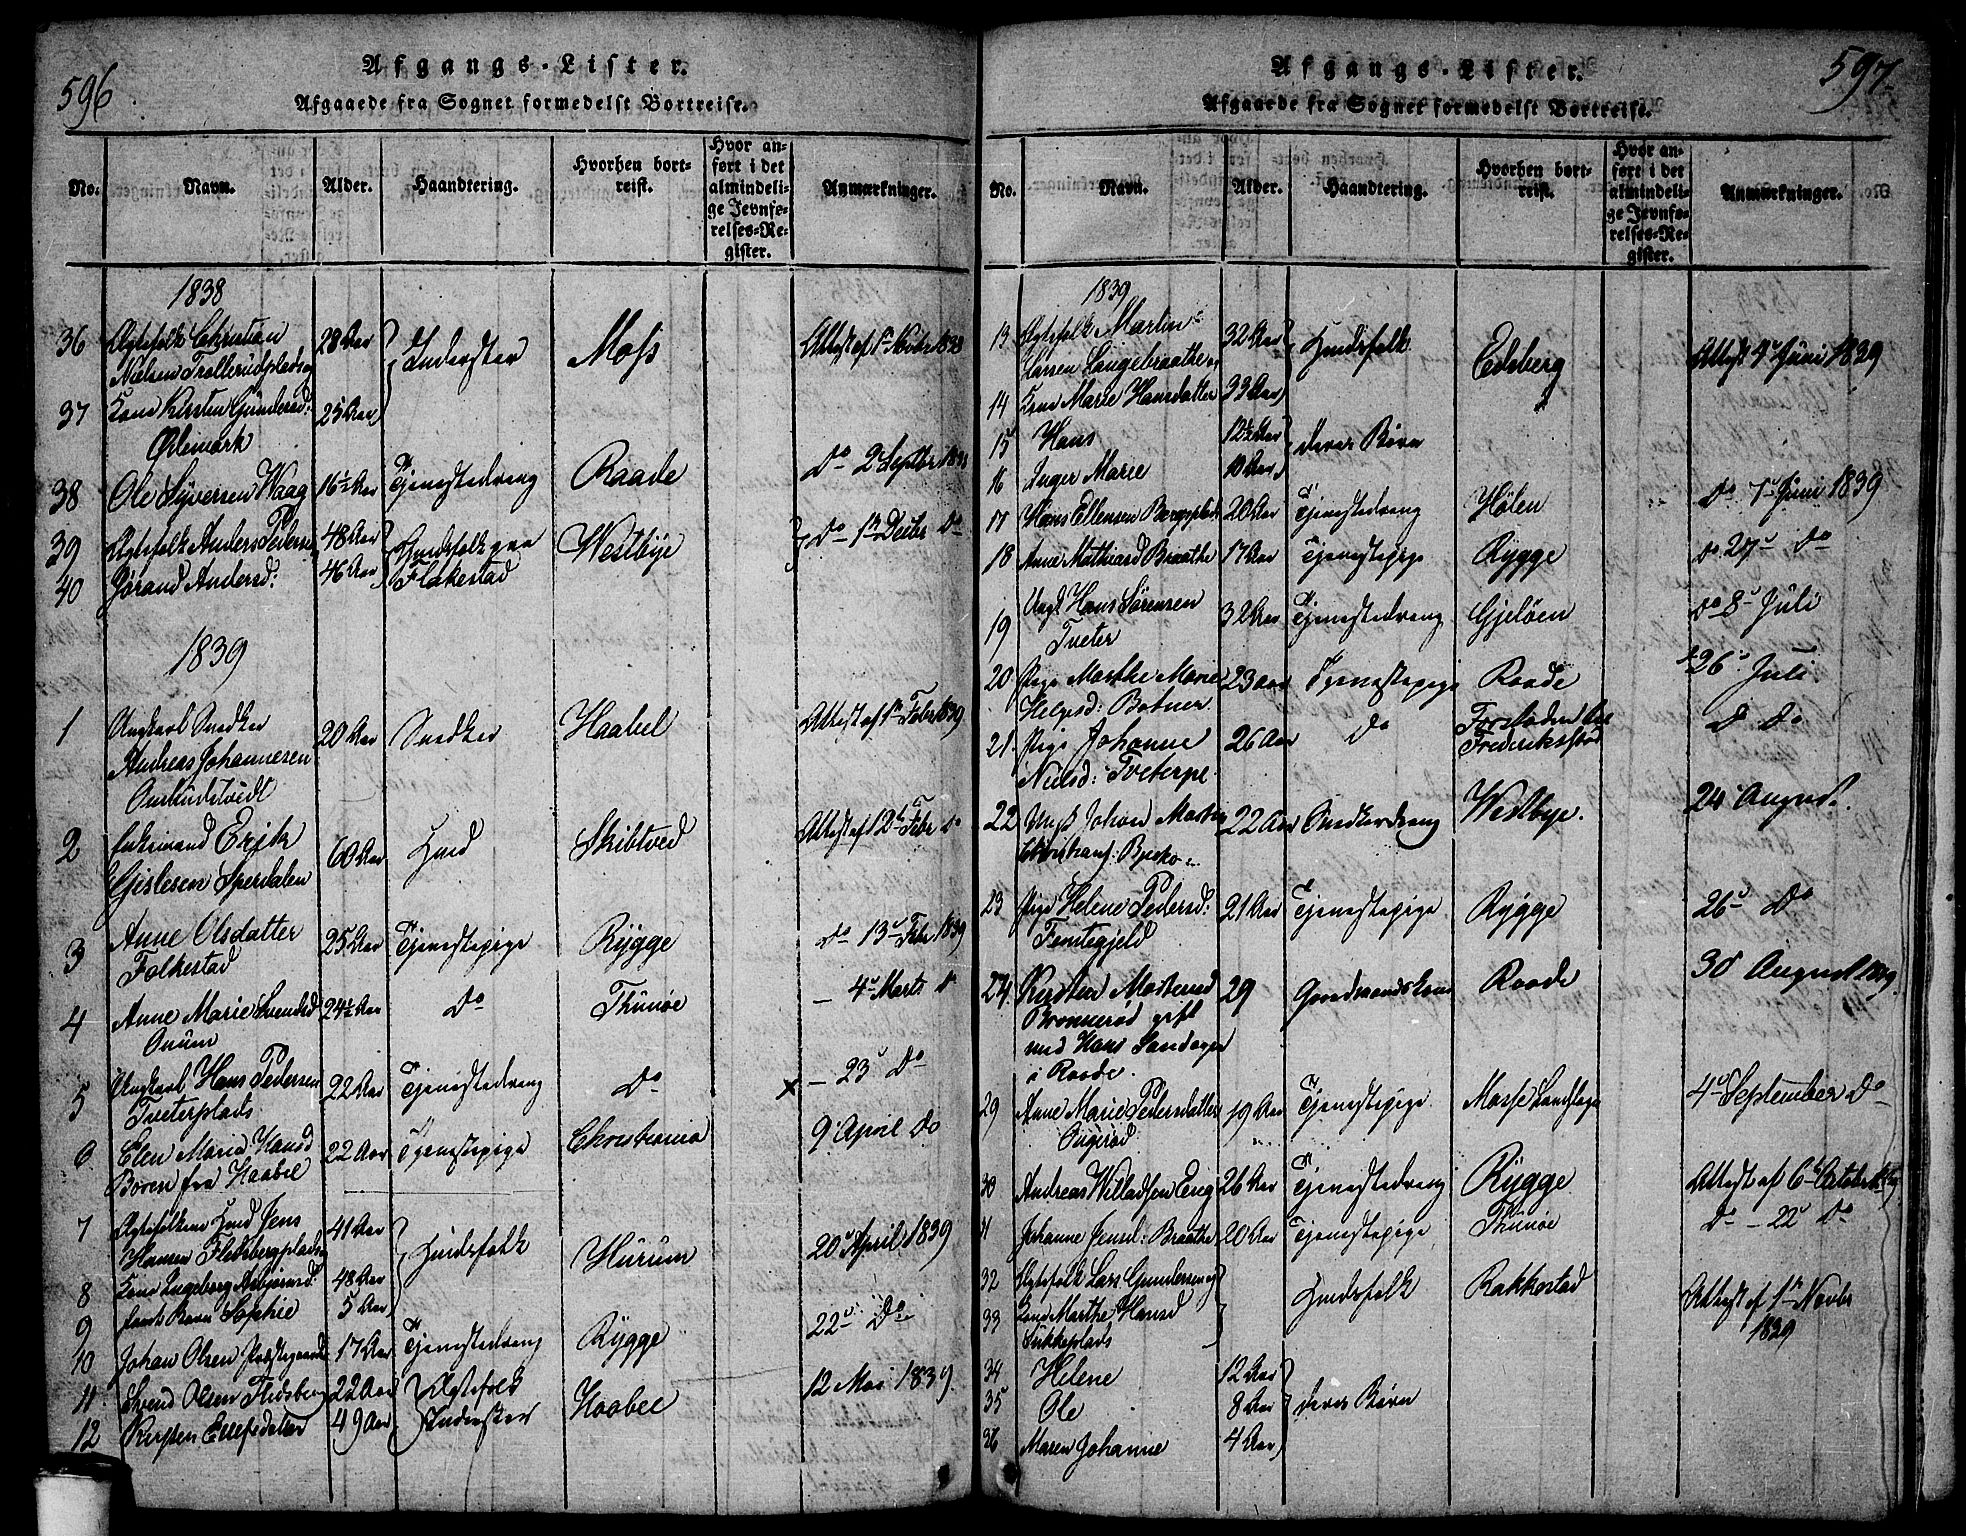 596
Afgangs-Lister.
Afgaaede fra Sognet formedelst Bortreise.
No. Navn. Alder. Haandtering. Hvorhen bortreist. Hvor anført i det almindelige Jevnførelses-Register. Anmærkninger.
1838
36 Ægtefolk Christian 28 Aar Inderster Moss Attest af 1ste Novbr 1838
Nielsen Trollerudplads og
37 Kone Kirsten Gundersd: 25 Aar
Ørlemark
38 Ole Syversen Waag 16½ Aar Tjenestedreng Raade Do 2 Septbr 1838
39 Ægtefolk Anders Pedersen 48 Aar Huusfolk paa Westbye Do 1ste Decbr Do
40 Gorand Andersd: 46 Aar Flakestad
1839
1 Ungkarl Snedker 20 Aar Snedker Haabel Attest af 1ste Febr 1839
Andreas Johannesen
2 Enkemand Erik 60 Aar Huusmd Skibtved Attest af 12te Febr Do
Gislesen Sperdalen
3 Anne Olsdatter 25 Aar Tjenestepige Rygge Do 13de Febr 1839
Falkestad
4 Anne Marie Svendsd 24½ Aar Do Thunøe — 4de Marts Do
Onum
5 Ungkarl Hans Pedersen 22 Aar Tjenestedreng Do x — 23de Do
Tveterplads
6 Elen Maria Hansd 22 Aar Tjenestepige Christiania 9 April Do
Boren fra Haabel
7 Ægtefolkene Huusmd Jens 41 Aar Huusfolk Hurum 20de April 1839
Hansen Flesbergplads og
8 Kone Ingeborg Asbjørnsd: 48 Aar
9 samt Barn Sophie 5 Aar
10 Johan Olsen Prestegaard 17 Aar Tjenestedreng Rygge 22de Do
11 Svend Olsen Flesberg 22 Aar Ægtefolk Haabel 12 Mai 1839.
12 Kirsten Ellefsdatter 49 Aar Inderster
597
Afgangs-Lister.
Afgaaede fra Sognet formedelst Bortreise.
No. Navn. Alder. Haandtering. Hvorhen bortreist. Hvor anført i det almindelige Jevnførelses-Register. Anmærkninger.
1839
13 Ægtefolk Martin 32 Aar Huusfolk Edsberg Attest 4de Juni 1839
Larsen Langebraathe og
14 Kone Marie Hansdatter 33 Aar
15 Hans 12½ Aar deres Børn
16 Inger Marie 10 Aar
17 Hans Ellensen Bergplads 20 Aar Tjenestedreng Hølen Do 7de Juni 1839
18 Anne Mathiasd Braathe 17 Aar Tjenestepige Rygge Do 27de Do
19 Ungk Hans Sørensen 32 Aar Tjenestedreng Gjeløen Do 8de Juli
Tveter
20 Pige Marthe Marie 23 Aar Tjenestepige Raade 26de Juli
Helgesd: Botner
21. Pige Johanne 26 Aar Do Forstaden Frederiksstad Do Do
Nielsd: Tveterpe.
22 Ungk Johan Martin 22 Aar Snedkerdreng Westbye. 24 August.
23 Pige Helene Pedersd: 21 Aar Tjenestepige Rygge 26de Do
Femtegjeld
24 Kirsten 29 Gaardmandskone Raade 30 August 1839.
Bronnerød gift
med Hans Sandager
i Raade.
29 Anne Marie Pedersdatter 19 Aar Tjenestepige Mosse Landsogn 4de September Do
Ougerød
30 Andreas Willadsen Eng 26 Aar Tjenestedreng Rygge Attest af 6te October 1839
31 Johanne Jensd: Braathe 20 Aar Tjenestepige Thunøe Do — 22de Do
32 Ægtefolk Lars Gundersen og Huusfolk Rakkestad Attest af 1ste Novbr 1839
33 Kone Marthe Hansd
34 Helene 12 Aar deres Børn
35 Ole 8 Aar
36 Maren Johanne 4 Aar